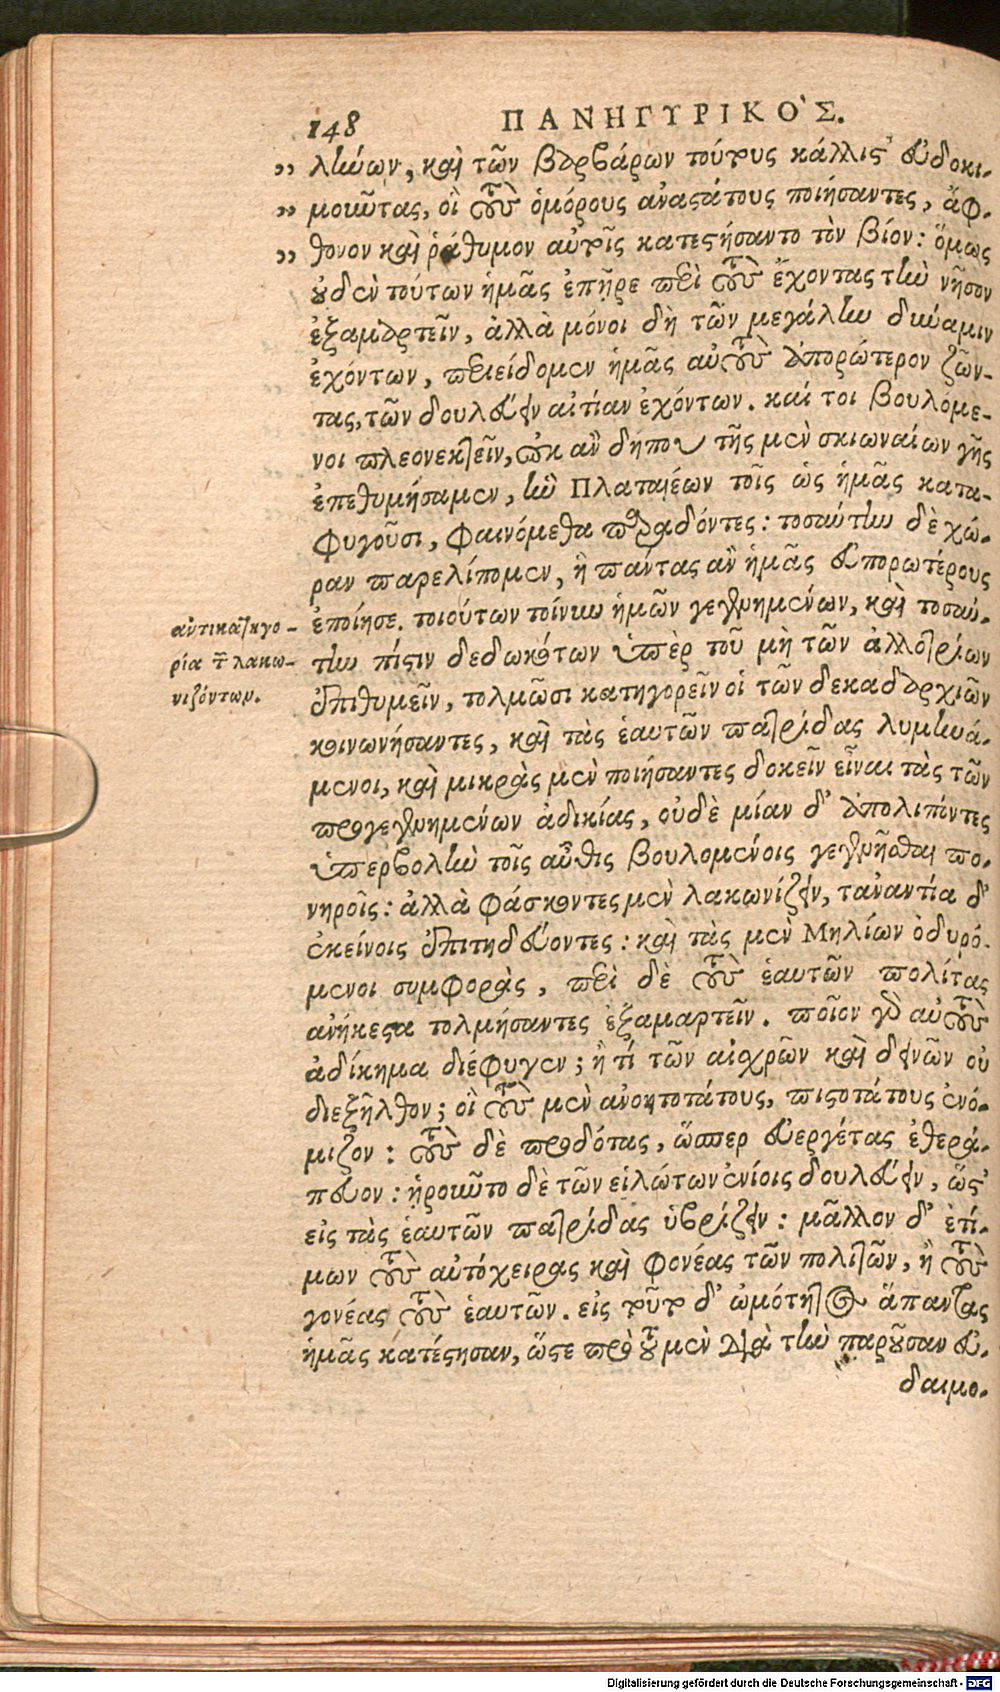 148 ΠΑΝΗΓΥΡΙΚΟ`Σ.
” λήνων, καὶ τῶν βαρβάρων τούτους κάλλιστ' εὐδοκι-
” μοῦντας, οἳ τοὺς ὁμόρους ἀναστάτους ποιήσαντες, ἄφ-
” θονον καὶ ῥάθυμον αὑτοῖς κατεστήσαντο τὸν βίον: ὅμως
οὐδὲν τούτων ἡμᾶς ἐπῆρε περὶ τοὺς ἔχοντας τὴν νῆσον
ἐξαμαρτεῖν, ἀλλὰ μόνοι δὴ τῶν μεγάλην δύναμιν
ἐχόντων, περιείδομεν ἡμᾶς αὐτοὺς ἀπορώτερον ζῶν-
τας, τῶν δουλεύειν αἰτίαν ἐχόντων. καί τοι βουλόμε-
νοι πλεονεκτεῖν, οὐκ ἂν δήπου τῆς μὲν σκιωναίων γῆς
ἐπεθυμήσαμεν, ἣν Πλαταιέων τοῖς ὡς ἡμᾶς κατα-
φυγοῦσι, φαινόμεθα παραδόντες: τοσαύτην δὲ χώ-
ραν παρελίπομεν, ἣ πάντας ἂν ἡμᾶς εὐπορωτέρους
ἐποίησε. τοιούτων τοίνυν ἡμῶν γεγενημένων, καὶ τοσαύ-
την πίστιν δεδωκότων ὑπὲρ τοῦ μὴ τῶν ἀλλοτρίων
ἐπιθυμεῖν, τολμῶσι κατηγορεῖν οἱ τῶν δεκαδαρχιῶν
κοινωνήσαντες, καὶ τὰς ἑαυτῶν πατρίδας λυμηνά-
μενοι, καὶ μικρὰς μὲν ποιήσαντες δοκεῖν εἶναι τὰς τῶν
προγεγενημένων ἀδικίας, οὐδὲ μίαν δ' ἀπολιπόντες
ὑπερβολὴν τοῖς αὖθις βουλομένοις γεγενῆσθαι πο-
νηροῖς: ἀλλὰ φάσκοντες μὲν λακωνίζειν, τἀναντία δ'
ἐκείνοις ἐπιτηδεύοντες: καὶ τὰς μὲν Μηλίων ὀδυρό-
μενοι συμφορὰς, περὶ δὲ τοὺς ἑαυτῶν πολίτας
ἀνήκεστα τολμήσαντες ἐξαμαρτεῖν. ποῖον γὰρ αὐτοὺς
ἀδίκημα διέφυγεν; ἢ τί τῶν αἰσχρῶν καὶ δεινῶν οὐ
διεξῆλθον; οἳ τοὺς μὲν ἀνοητοτάτους, πιστοτάτους ἐνό-
μιζον: τοὺς δὲ προδότας, ὥσπερ εὐεργέτας ἐθερά-
πευον: ᾑροῦντο δὲ τῶν εἱλώτων ἐνίοις δουλεύειν, ὥστ'
εἰς τὰς ἑαυτῶν πατρίδας ὑβρίζειν: μᾶλλον δ' ἐτί-
μων τοὺς αὐτόχειρας καὶ φονέας τῶν πολιτῶν, ἢ τοὺς
γονέας τοὺς ἑαυτῶν. εἰς τοῦτο δ' ὠμότητος ἅπαντας
ἡμᾶς κατέστησαν, ὥστε πρὸ τοῦ μὲν διὰ τὴν παροῦσαν εὐ-
δαιμο-
ἀντικατηγο-
ρία τῶν λακω-
νιζόντων.
Digitalisierung gefördert durch die Deutsche Forschungsgemeinschaft - DFG